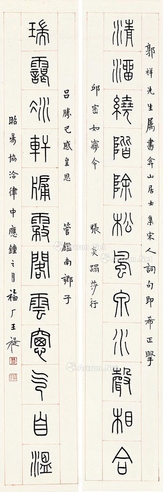 郭祥先生屬書弇山居士集宋人詞句即希正擘
清繞階除松風泉水聲相合
邱崈如夢令　張炎踏莎行
呂勝己感皇恩　管鑑南鄉子
瑞靄軒牖霧閣雲窗人自溫
昭易協洽律中應鐘之月福厂王禔